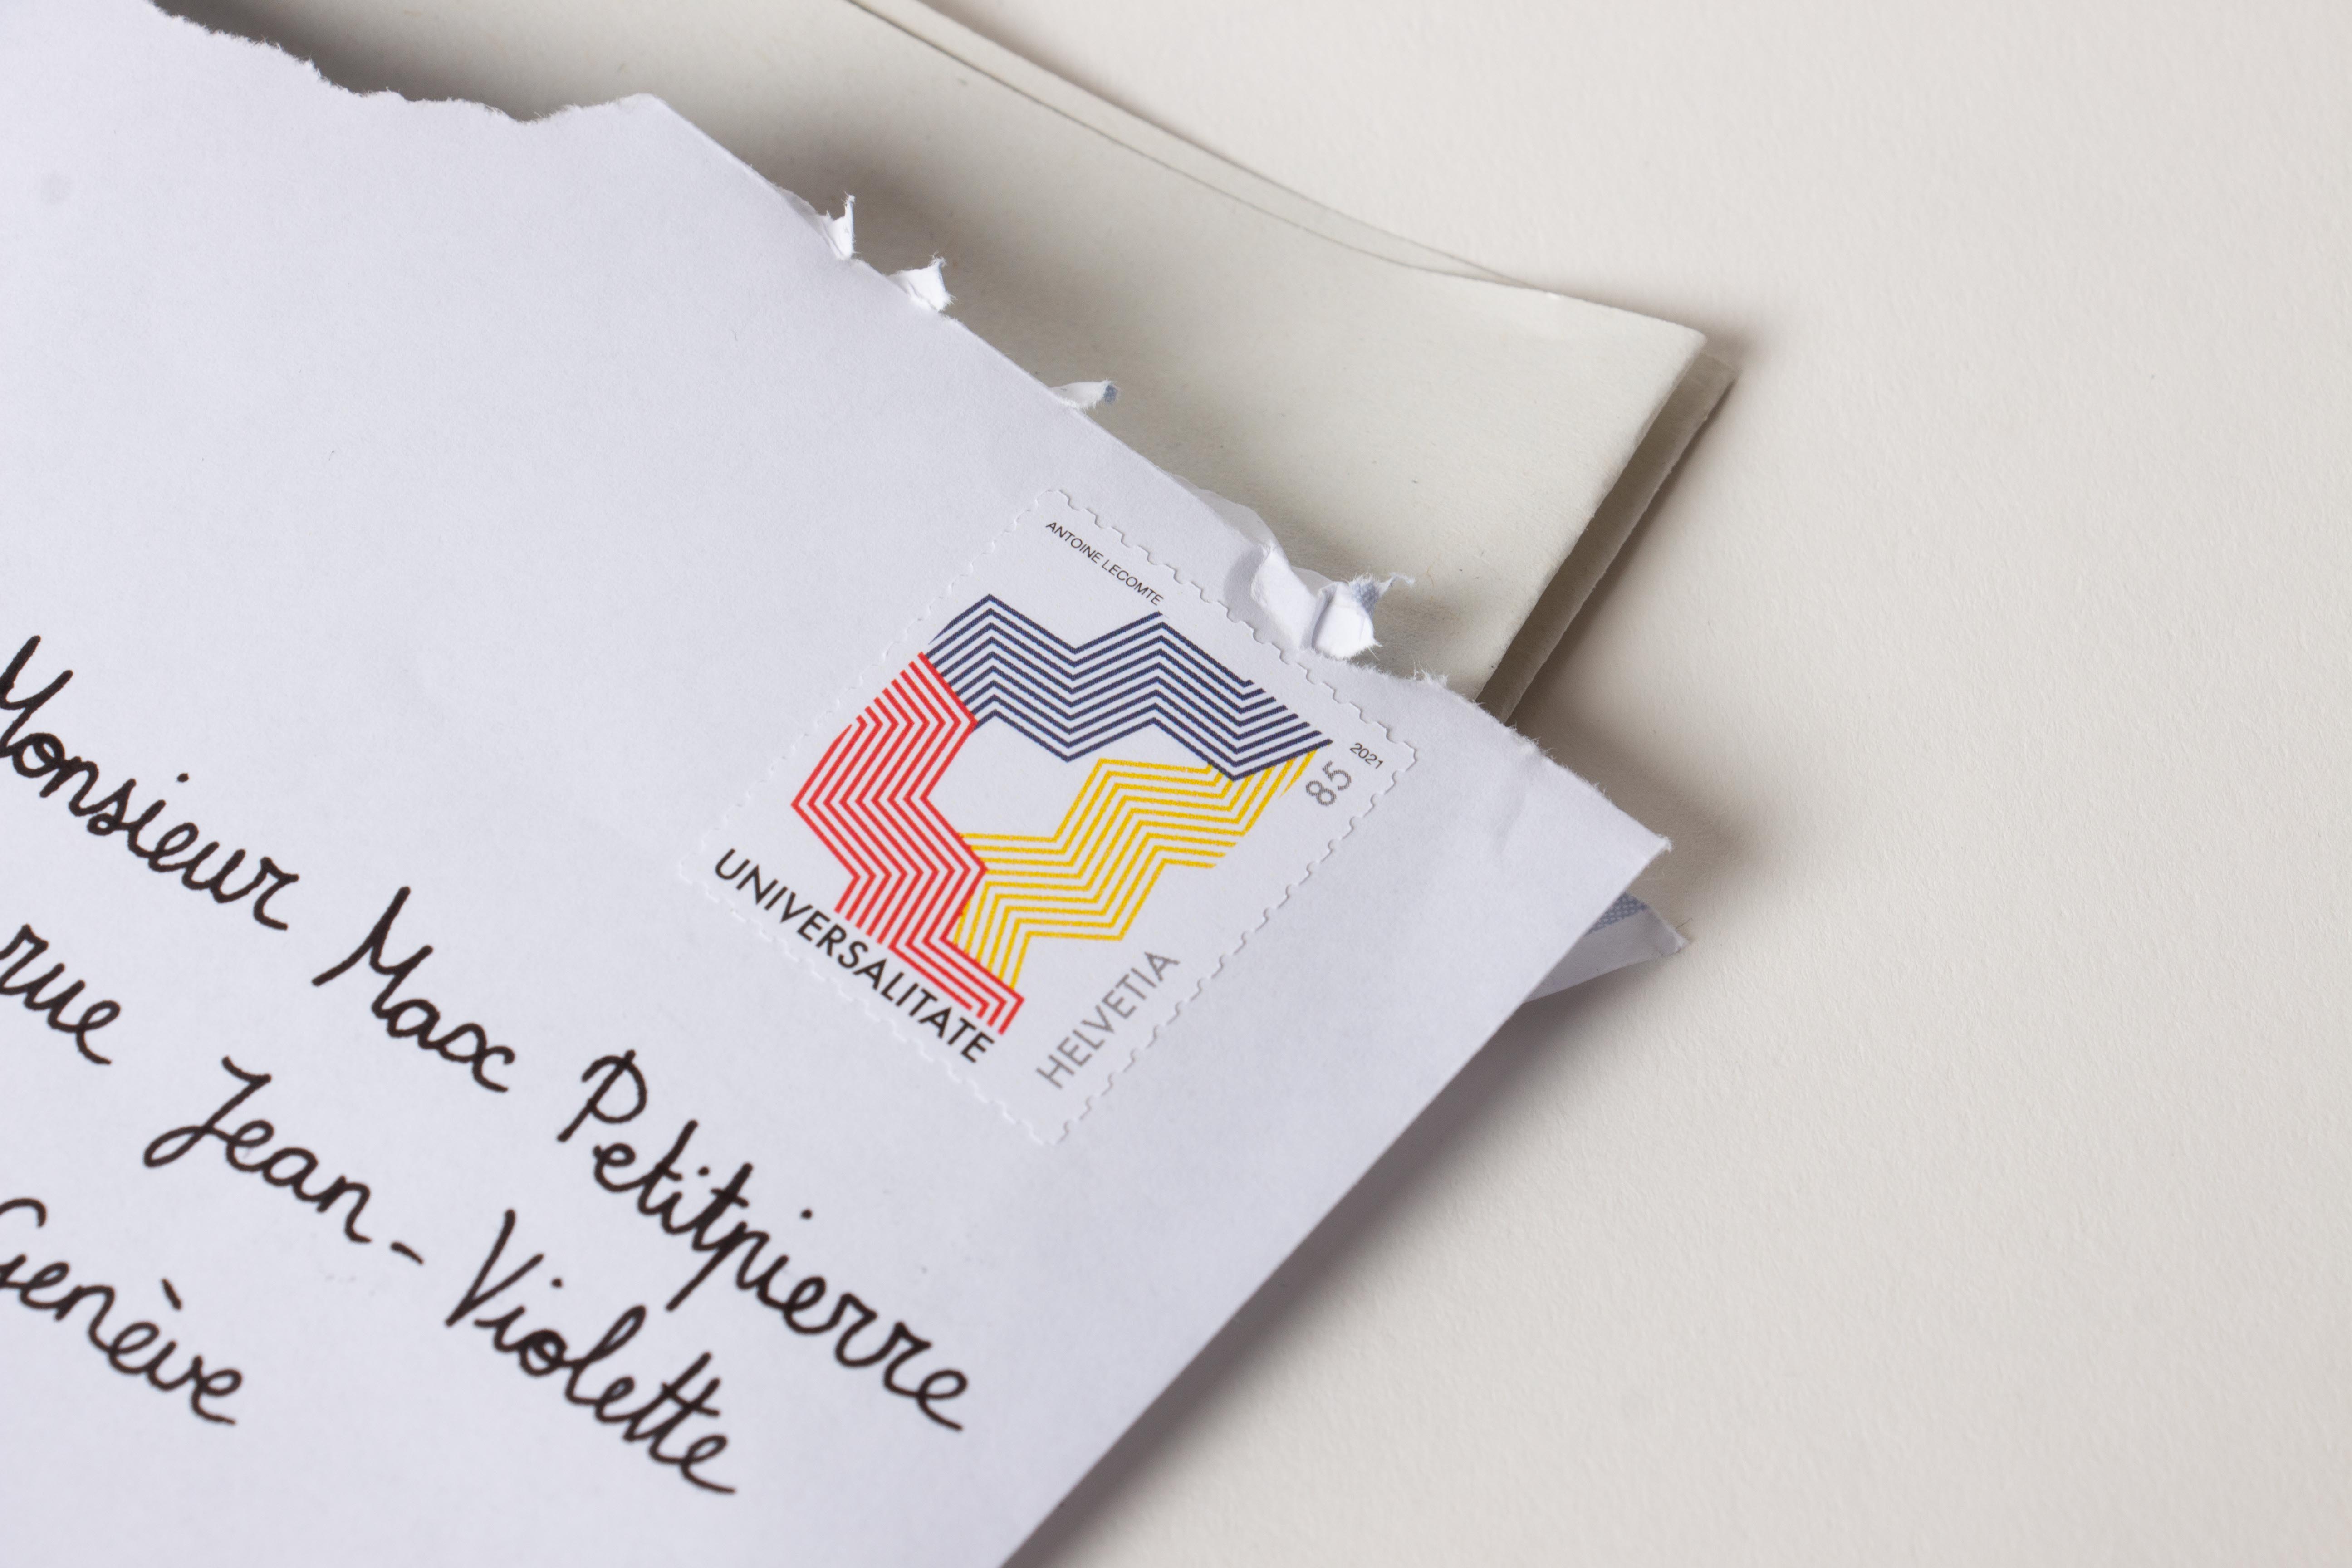 ANTOINE LECOMTE
2021
85
UNIVERSALITATE
HELVETIA
Monsieur Max Petitpierre
rue Jean-Violette
Genève